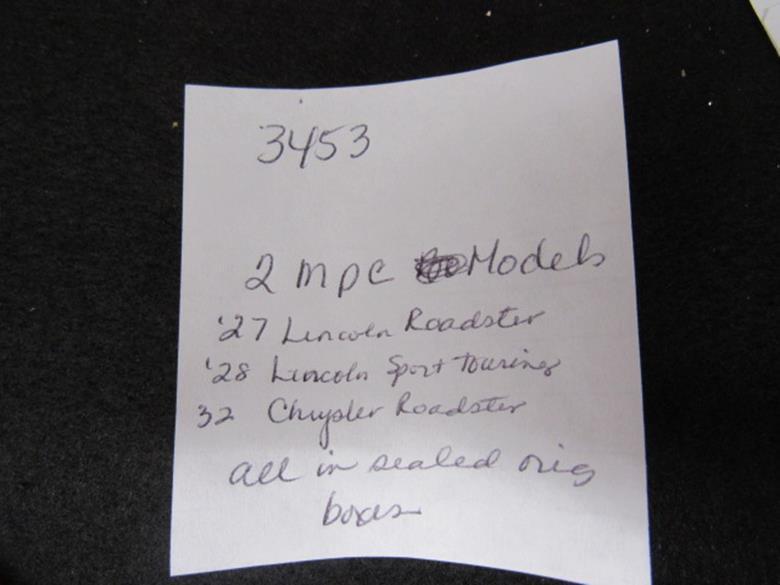 3453
2 mpc Models
'27 Lincoln Roadster
'28 Lincoln Sport Touring
32 Chrysler Roadster
all in sealed orig
boxes